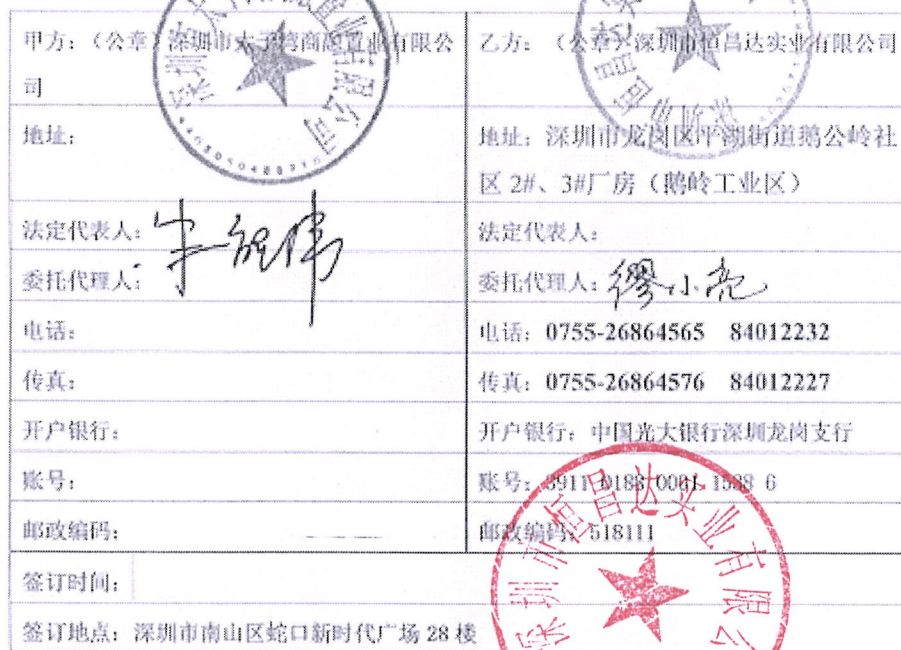 甲方：（公章）深圳市太子湾商融置业有限公
司
乙方：（公章）深圳市恒昌达实业有限公司
地址：
地址：深圳市龙岗区平湖街道鹅公岭社
区 2#、3#厂房（鹅岭工业区）
法定代表人：
法定代表人：
委托代理人：
委托代理人：缪小亮
电话：
电话：0755-26864565 84012232
传真：
传真：0755-26864576 84012227
开户银行：
开户银行：中国光大银行深圳龙岗支行
账号：
账号：
邮政编码：
邮政编码：518111
签订时间：
签订地点：深圳市南山区蛇口新时代广场 28 楼
深圳市恒昌达实业有限公